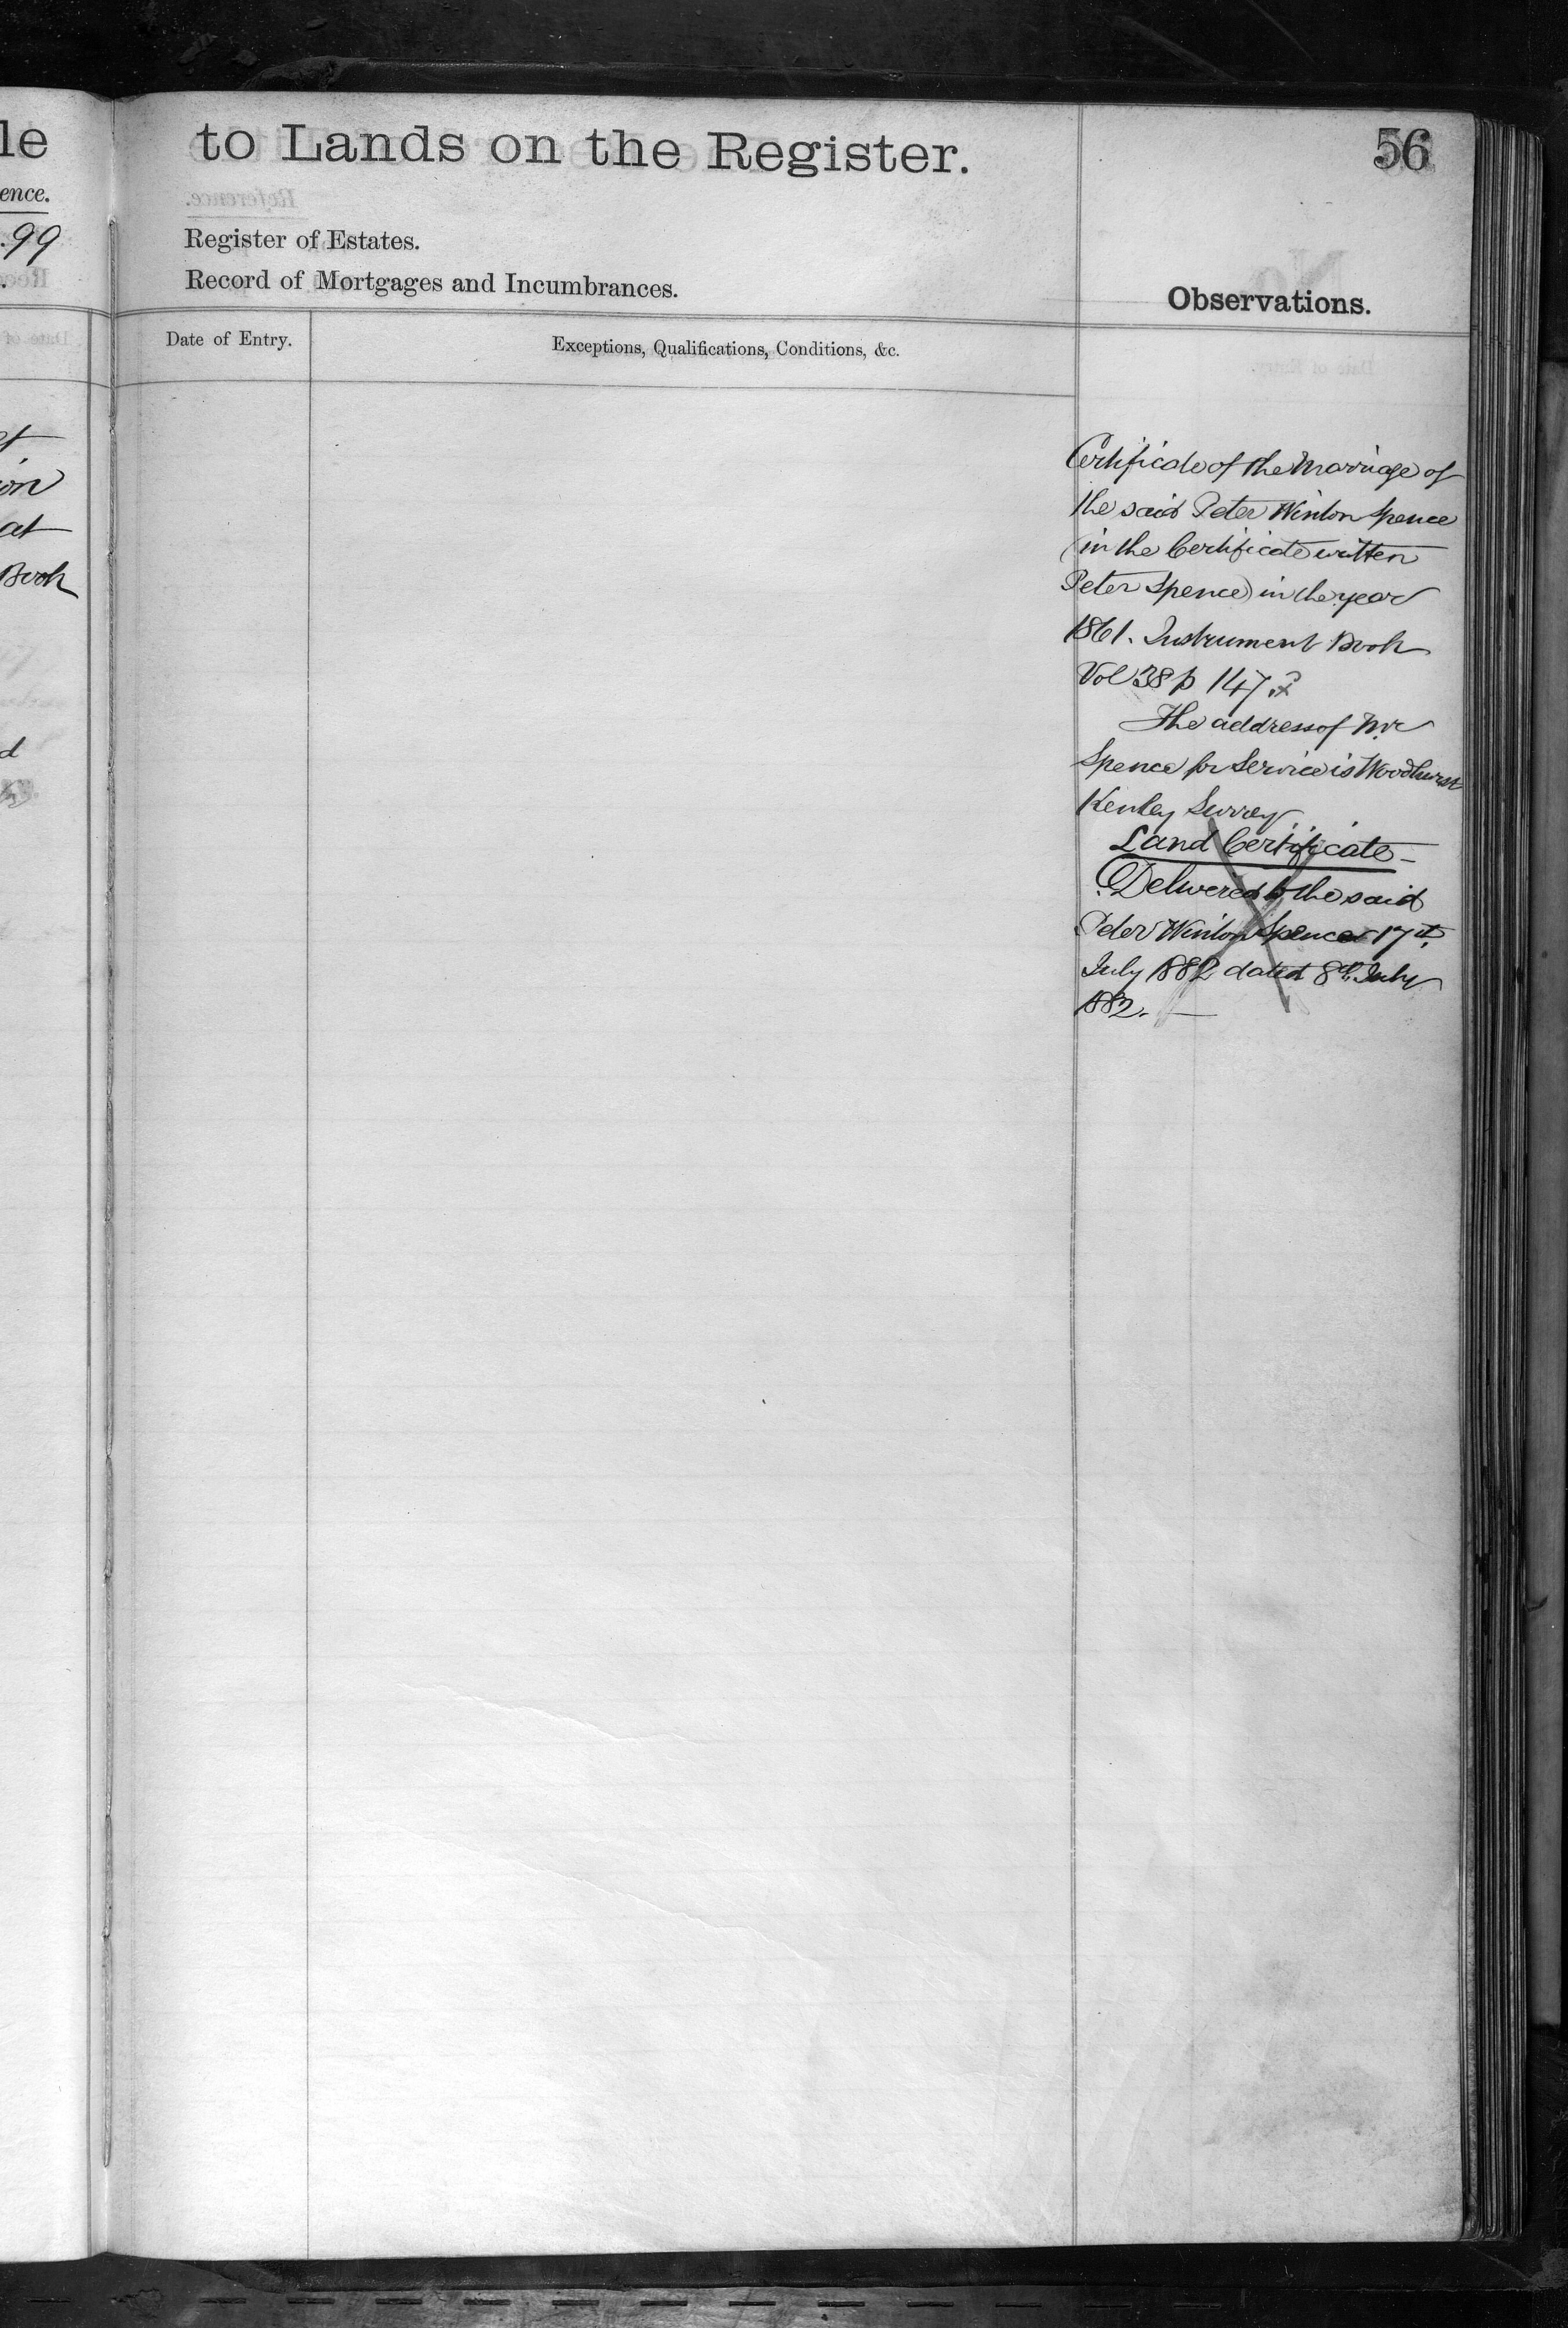 le
to Lands on the Register.
56
ence.
.99
Register of Estates.
Record of Mortgages and Incumbrances.
Observations.
Date of Entry.
Exceptions, Qualifications, Conditions, &c.
at
Book
d
Certificate of the Marriage of
the said Peter Winton Spence
(in the Certificate written
Peter Spence) in the year
1861. Instrument Book
Vol 38 p 147
The address of Mr
Spence for Service is Woodhurst
Kenley Surrey
Land Certificate -
Delivered to the said
Peter Winton Spence 17th
July 1882 dated 8th July
1882. —